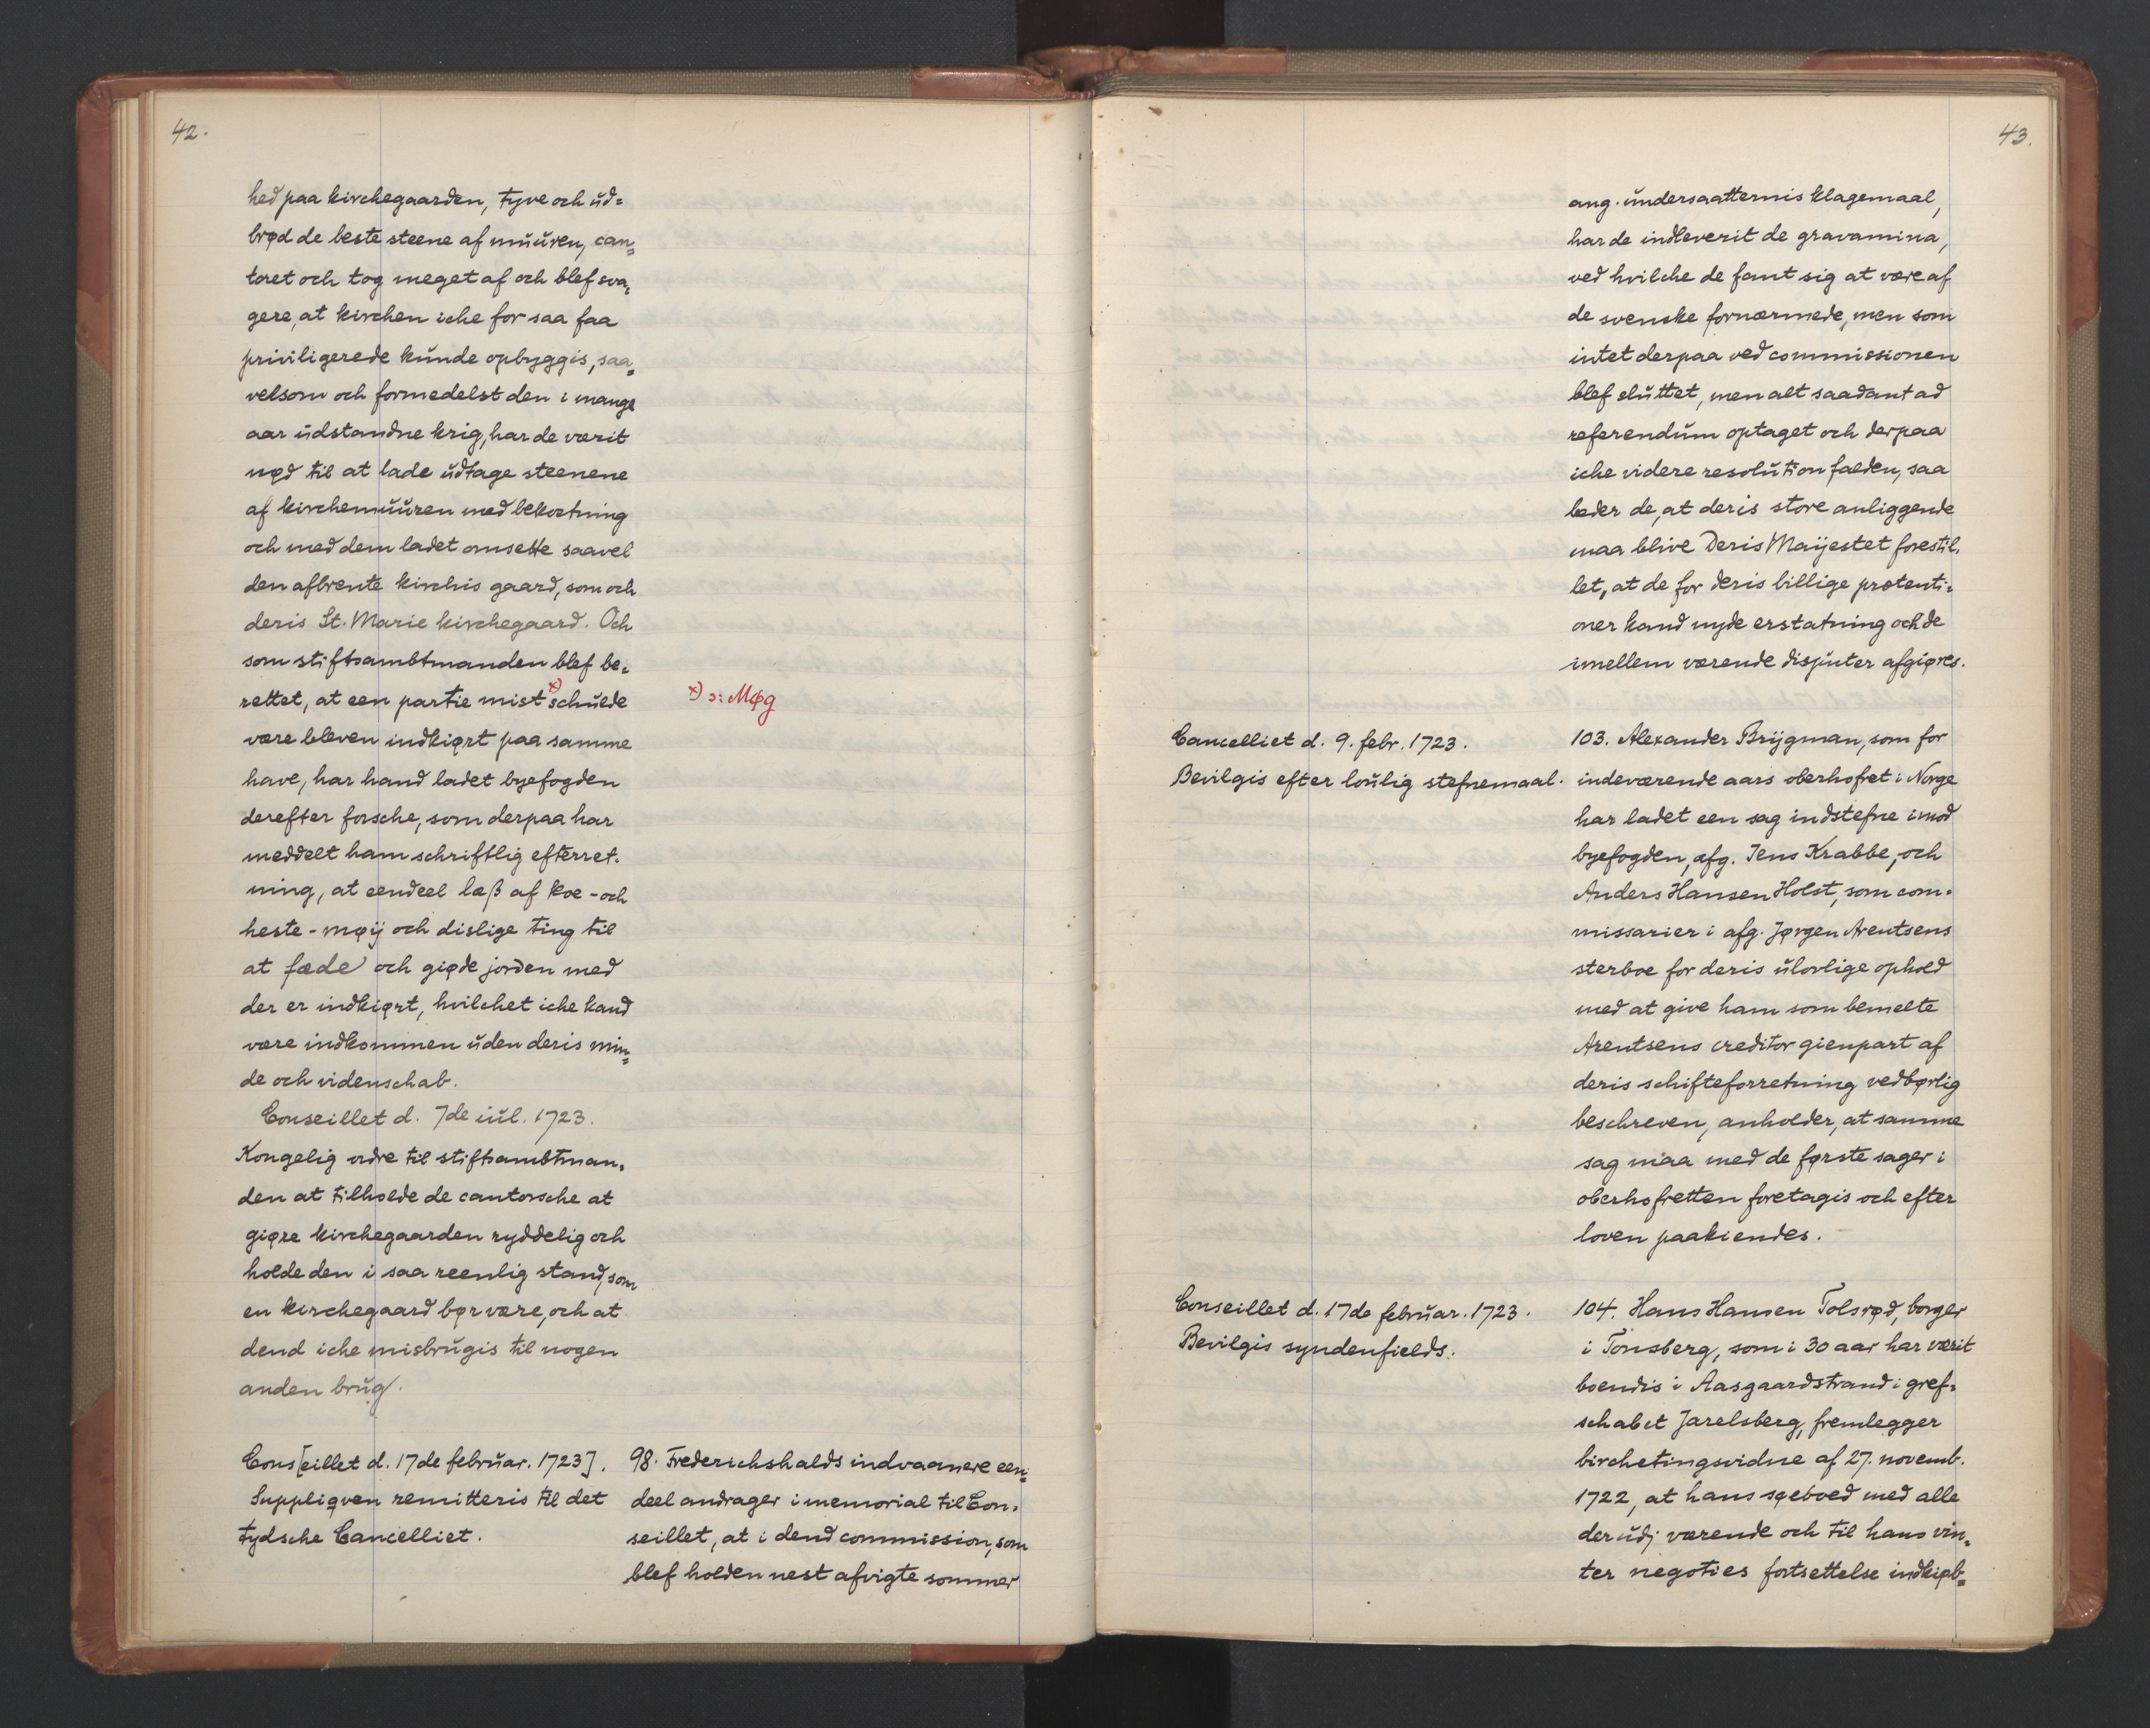 42.
hed paa kirchegaarden, tyve och ud=
brød de beste steene af muuren, can=
toret och tog meget af och blef sva=
gere, at kirchen iche for saa faa
priviligerede kunde opbyggis, saa=
velsom och formedelst den i mange
aar udstandne krig, har de værit
nød til at lade udtage steenene
af kirchemuuren med bekostning
och med dem ladet omsette saavel
den afbrente kirchis gaard, som och
deris St. Marie kirchegaard. Och
som stiftsambtmanden blef be=
rettet, at een partie mist x) schulde
være bleven indkiørt paa samme
have, har hand ladet byefogden
derefter forsche, som derpaa har
meddelt ham schriftlig efterret=
ning, at eendeel læß af koe- och
heste-møij och dislige ting til
at fæde och giøde jorden med
der er indkiørt, hvilchet iche kand
være indkommen uden deris min=
de och videnschab.
Conseillet d. 7de iul. 1723.
Kongelig ordre til stiftsambtman=
den at tilholde de cantorsche at
giøre kirchegaarden ryddelig och
holde den i saa reenlig stand, som
en kirchegaard bør være, och at
dend iche misbrugis til nogen
anden brug.
x) ɔ: Møg
Cons[eillet d. 17de februar. 1723].
Suppliqven remitteris til det
tydsche Cancelliet.
98. Frederichshalds indvaanere een=
deel andrager i memorial til Con=
seillet, at i dend commission, som
blef holden nest afvigte sommer
43.
ang. undersaatternis klagemaal,
har de indleverit de gravamina,
ved hvilche de fant sig at være af
de svenske fornærmede, men som
intet derpaa ved commissionen
blef sluttet, men alt saadant ad
referendum optaget och derpaa
iche videre resolution falden, saa
beder de, at deris store anliggende
maa blive Deris Maijestet forestil=
let, at de for deris billige prætenti=
oner kand nyde erstatning och de
imellem værende disputer afgiøres.
Cancelliet d. 9. febr. 1723.
Bevilgis efter loulig stefnemaal.
103. Alexander Brijgman, som for
indeværende aars oberhofret i Norge
har ladet een sag indstefne imod
byefogden, afg. Jens Krabbe, och
Anders Hansen Holst, som com=
missarier i afg. Jørgen Arentsens
sterboe for deris ulovlige ophold
med at give ham som bemelte
Arentsens creditor gienpart af
deris schifteforretning vedbørlig
beschreven, anholder, at samme
sag maa med de første sager i
oberhofretten foretagis och efter
loven paakiendes.
Conseillet d. 17de februar. 1723.
Bevilgis syndenfields.
104. Hans Hansen Tolsrød, borger
i Tønsberg, som i 30 aar har værit
boendis i Aasgaardstrand i gref=
schabet Jarelsberg, fremlegger
birchetingsvidne af 27. novemb.
1722, at hans søeboed med alle
der udj værende och til hans vin=
ter negoties fortsettelse indkiøb=